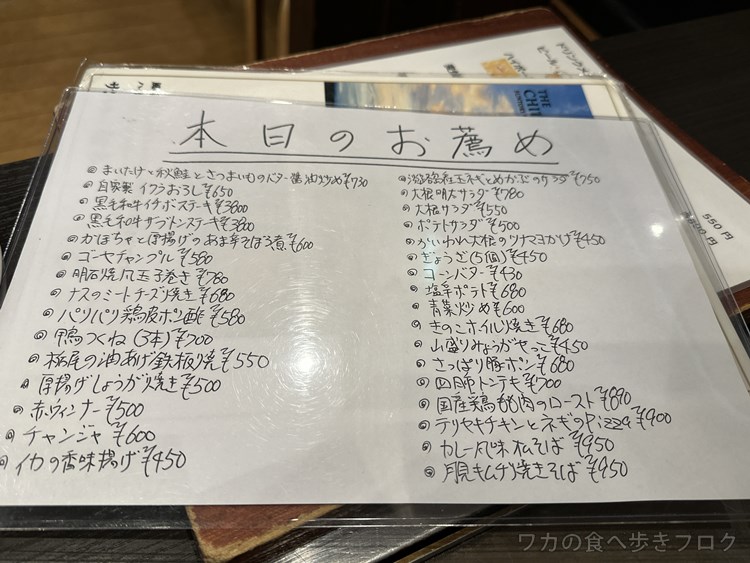 本日のお薦め
◎まいたけと秋鮭とさつまいものバター醤油炒め¥730
◎自家製イクラおろし¥650
◎黒毛和牛イチボステーキ¥3800
◎黒毛和牛ザブトンステーキ¥3800
◎かぼちゃと厚揚げのあま辛そぼろ煮¥600
◎ゴーヤチャンプル¥580
◎明石焼風玉子巻き¥780
◎ナスのミートチーズ焼き¥680
◎パリパリ鶏皮ポン酢¥580
◎鴨つくね(3本)¥700
◎栃尾の油あげ鉄板焼¥550
◎厚揚げしょうが焼き¥500
◎赤ウィンナー¥500
◎チャンジャ¥600
◎イカの香味揚げ¥450
◎湘南紅玉ネギとめかぶのサラダ¥750
◎大根明太サラダ¥780
◎大根サラダ¥550
◎ポテトサラダ¥500
◎かいわれ大根のツナマヨかけ¥450
◎ぎょうざ(5個)¥450
◎コーンバター¥430
◎塩辛ポテト¥680
◎青菜炒め¥600
◎きのこホイル焼き¥680
◎山盛りみょうがやっこ¥450
◎さっぱり豚ポン¥680
◎四川トンテキ¥700
◎国産鶏もも肉のロースト¥890
◎テリヤキチキンとネギのPizza¥900
◎カレー風味ソバそば¥950
◎月見キムチ焼きそば¥950
ドリンクメ
ビール
ハイボー
THE
CHI
550円
500円
ワカの食べ歩きブログ